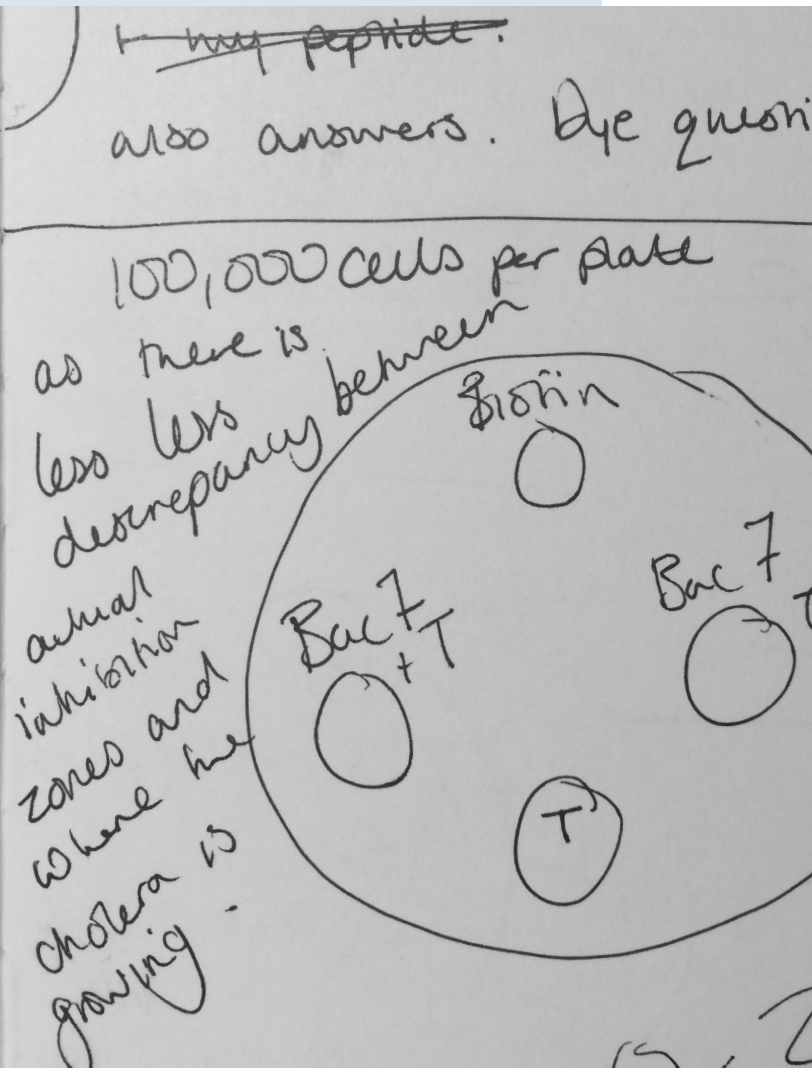 my peptide.
also answers. Dye questi
100,000 cells per plate
as there is
less less
descrepancy between
actual
inhibition
zones and
where the
cholera is
growing.
Biotin
Bac 7
Bac 7
+ T
T